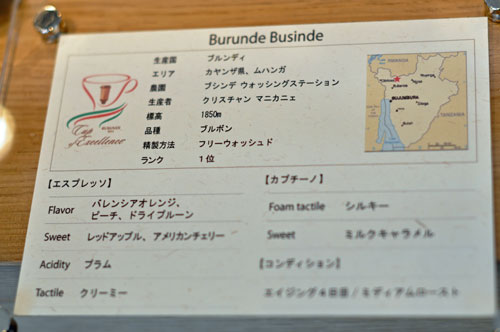 Burunde Businde
生産国 ブルンディ
エリア カヤンザ県、ムハンガ
農園 ブシンデ ウォッシングステーション
生産者 クリスチャン マニカニェ
標高 1850m
品種 ブルボン
精製方法 フリーウォッシュド
ランク 1位
Cup
of Excellence
BURUNDI
RWANDA
BUJUMBURA
TANZANIA
【エスプレッソ】
Flavor バレンシアオレンジ、
ピーチ、ドライプルーン
Sweet レッドアップル、アメリカンチェリー
Acidity プラム
Tactile クリーミー
【カプチーノ】
Foam tactile シルキー
Sweet ミルクキャラメル
【コンディション】
エイジング4日目 / ミディアムロースト